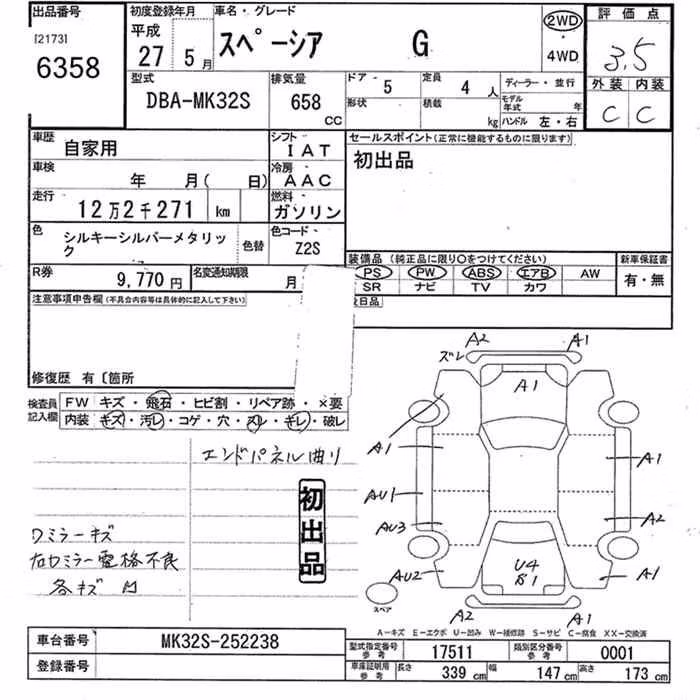 出品番号
[2173]
6358
初度登録年月
平成
27 5月
車名・グレード
スペーシア G
2WD
・
4WD
評価点
3.5
外装 内装
C C
型式
DBA-MK32S
排気量
658
CC
ドア 5
形状
定員 4 人
積載 kg
ディーラー・並行
モデル年式 年
ハンドル 左・右
車歴
自家用
シフト
IAT
車検
年 月( 日)
冷房
AAC
走行
12万2千271 km
燃料
ガソリン
色
シルキーシルバーメタリック
色替
色コード
Z2S
セールスポイント(正常に機能するものに限ります)
初出品
装備品 (純正品に限り○をつけてください)
新車保証書
PS PW ABS エアB AW
SR ナビ TV カワ
有・無
R券
9,770 円
名変通知期限
月
注意事項申告欄(不具合内容等は具体的に記入して下さい)
修復歴 有〔箇所
検査員
記入欄
FW キズ・飛石・ヒビ割・リペア跡・×要
内装 キズ・汚レ・コゲ・穴・スレ・キレ・破レ
エンドパネル曲り
初出品
各キズ
A2 A1
ズレ
A1
A1 A1
AU1
AU3 A2
AU2 A1
U4
B1
A2 A1
スペア
A-キズ E-エクボ U-凹み W-補修跡 S-サビ C-腐食 XX-交換済
車台番号
MK32S-252238
登録番号
型式指定番号
参考
17511
類別区分番号
参考
0001
車庫証明用
参考
長さ 339 cm 幅 147 cm 高さ 173 cm